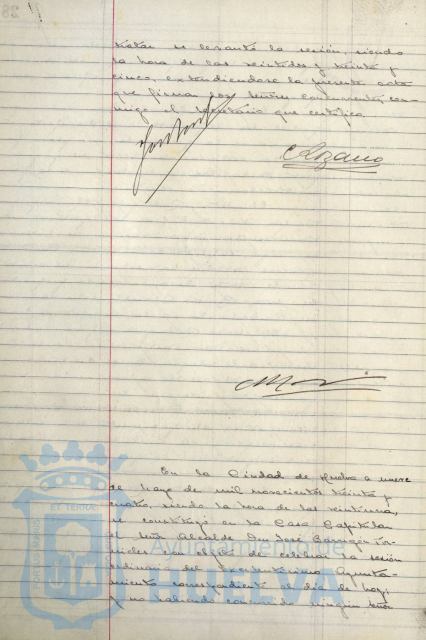 tratar se levantó la sesión, siendo
la hora de las veintidos y treinta y
cinco, extendiendose la presente acta
que firman los señores concurrentes con-
migo el Secretario que certifico.
Lozano
En la Ciudad de Huelva a nueve
de Mayo de mil novecientos treinta y
cuatro, siendo la hora de las veintiuna,
se constituyó en la Casa Capitular
el Señor Alcalde Don José Barrigón For-
nieles con el fin de celebrar la sesión
ordinaria del Excelentísimo Ayunta-
miento correspondiente al día de hoy,
y no habiendo concurrido ningún señor
Ayuntamiento de
HUELVA